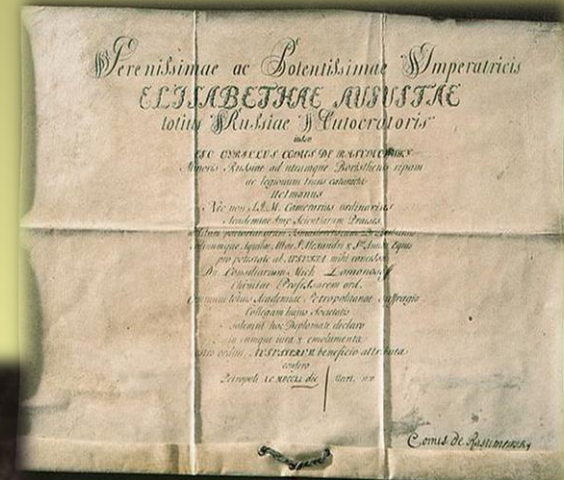 Serenissimae ac Potentissimae Imperatricis
ELISABETHAE AUGUSTAE
totius Russiae Autocratoris
iussu
EGO CYRILLUS COMES DE RASUMOWSKY
Minoris Russiae ad utramque Boristhenis ripam
ac legionum trans
Hetmanus
Nec non S. I. M. Camerarius ordinarius
Academiae Imp. Scientiarum Praeses
Aquilae Albae S. Alexandri & Stae Annae Eques
pro potestate ab AUGUSTA mihi concessa
Dn. Consiliarium Mich Lomonosoff
Chimiae Professorem ord.
Communi totius Academiae Petropolitanae suffragio
Collegam huius Societatis
solenni hoc Diplomate declaro
iura & emolumenta
ordini AUGUSTAE beneficio attributa
confero
Petropoli die
Comes de Rasumowsky